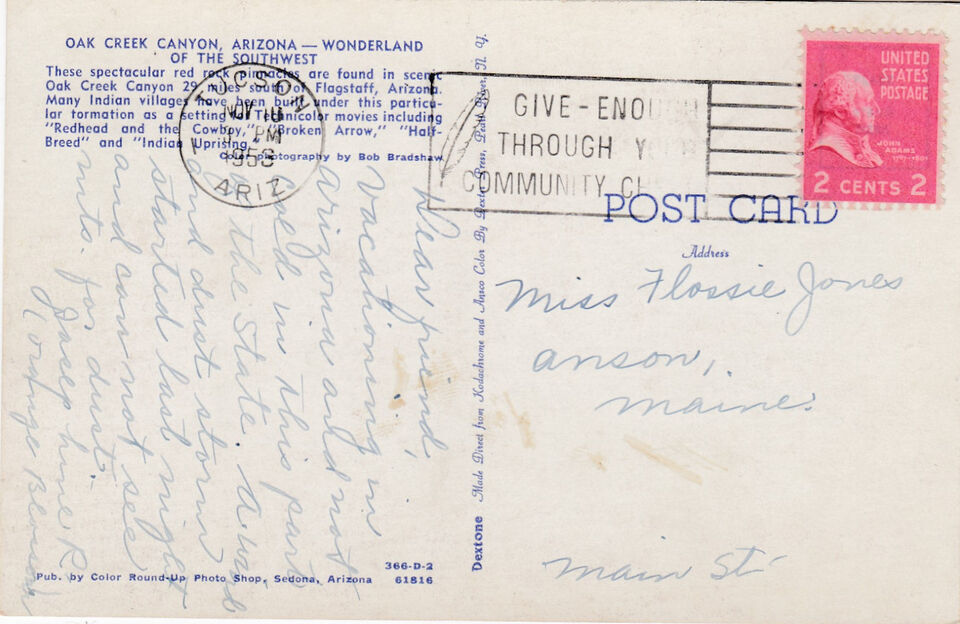 OAK CREEK CANYON, ARIZONA — WONDERLAND
OF THE SOUTHWEST
These spectacular red rock pinnacles are found in scenic
Oak Creek Canyon 29 miles south of Flagstaff, Arizona.
Many Indian villages have been built under this particu-
lar formation as a setting for Technicolor movies including
"Redhead and the Cowboy," "Broken Arrow," "Half-
Breed" and "Indian Uprising."
Color Photography by Bob Bradshaw
TUCSON
NOV
PM
1953
ARIZ
GIVE - ENOUGH
THROUGH YOUR
COMMUNITY CHEST
UNITED
STATES
POSTAGE
JOHN
ADAMS
1797-1801
2 CENTS 2
POST CARD
Address
Miss Flossie Jones
anson,
maine.
main St.
Dear friend,
Vacationing in
arizona and not
in this part
the State. a wind
and dust storm
started last night
and can not see
mts. for dust.
Josephine R
(Lounge Blouson)
Dextone Made Direct from Kodachrome and Ansco Color By Dexter Press, Pearl River, N. Y.
366-D-2
Pub. by Color Round-Up Photo Shop, Sedona, Arizona 61816